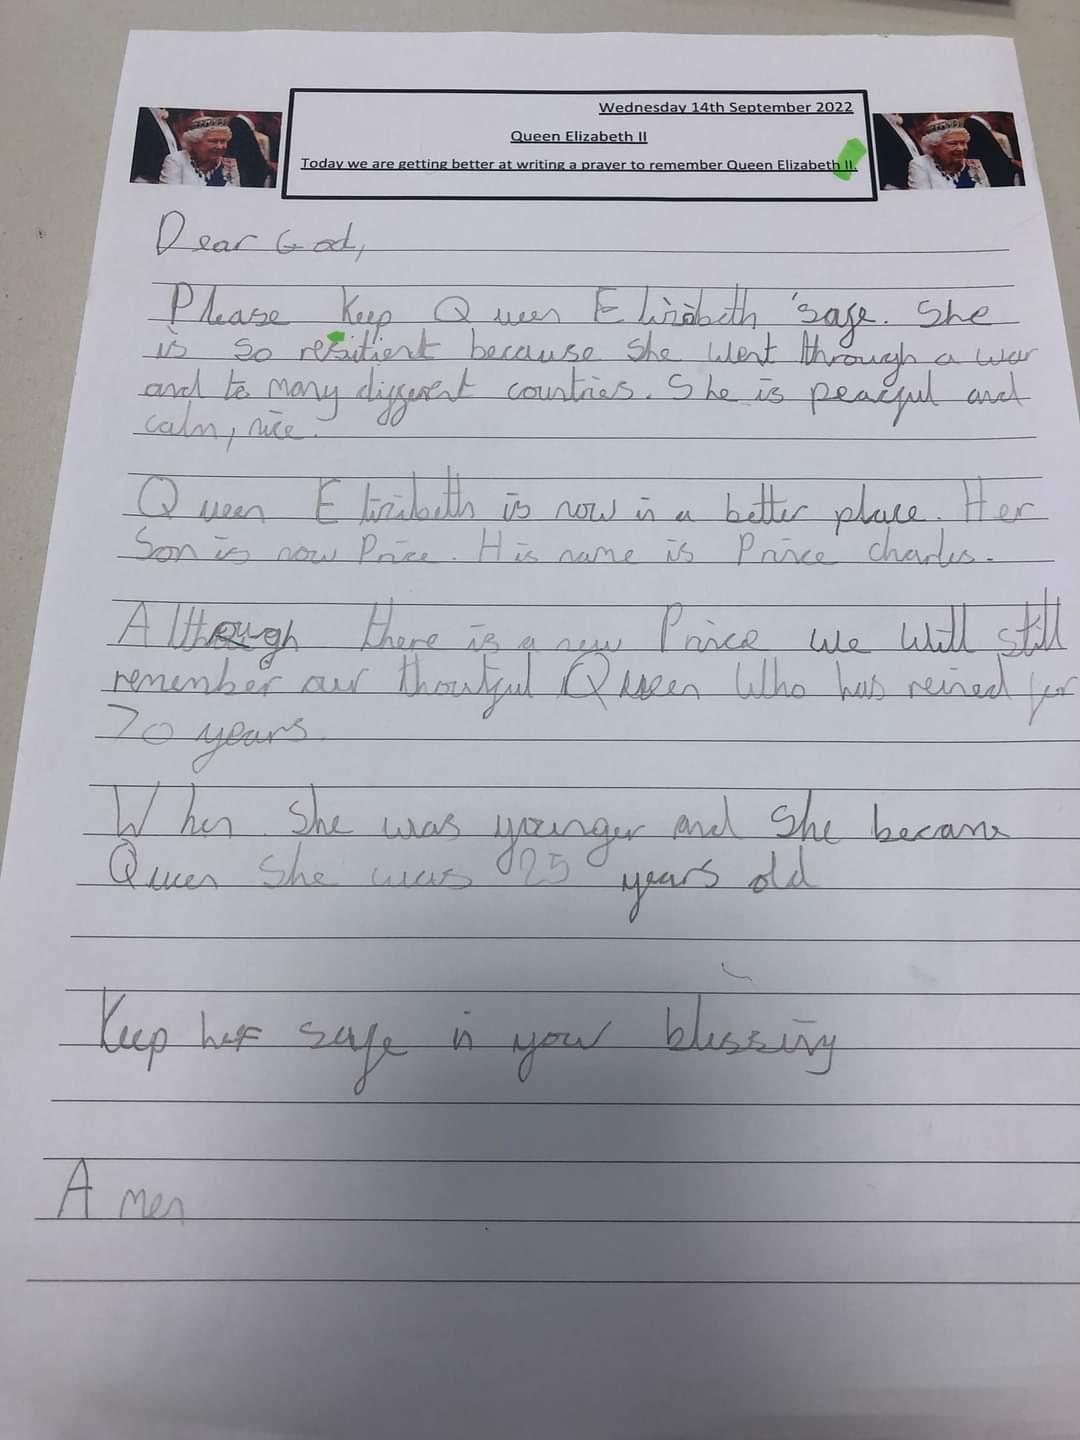 Wednesday 14th September 2022
Queen Elizabeth II
Today we are getting better at writing a prayer to remember Queen Elizabeth II.
Dear God,
Please Keep Queen Elizibeth safe. She
is so resitient because she went through a war
and to many different countries. She is peacful and
calm, nice.
Queen Elizibeth is now in a better place. Her
Son is now Price. His name is Prince charles.
Although there is a new Prince we will still
remember our thoutful Queen Who has reined for
70 years.
When she was younger and she became
Queen she was 25 years old
Keep her safe in your blessing
Amen